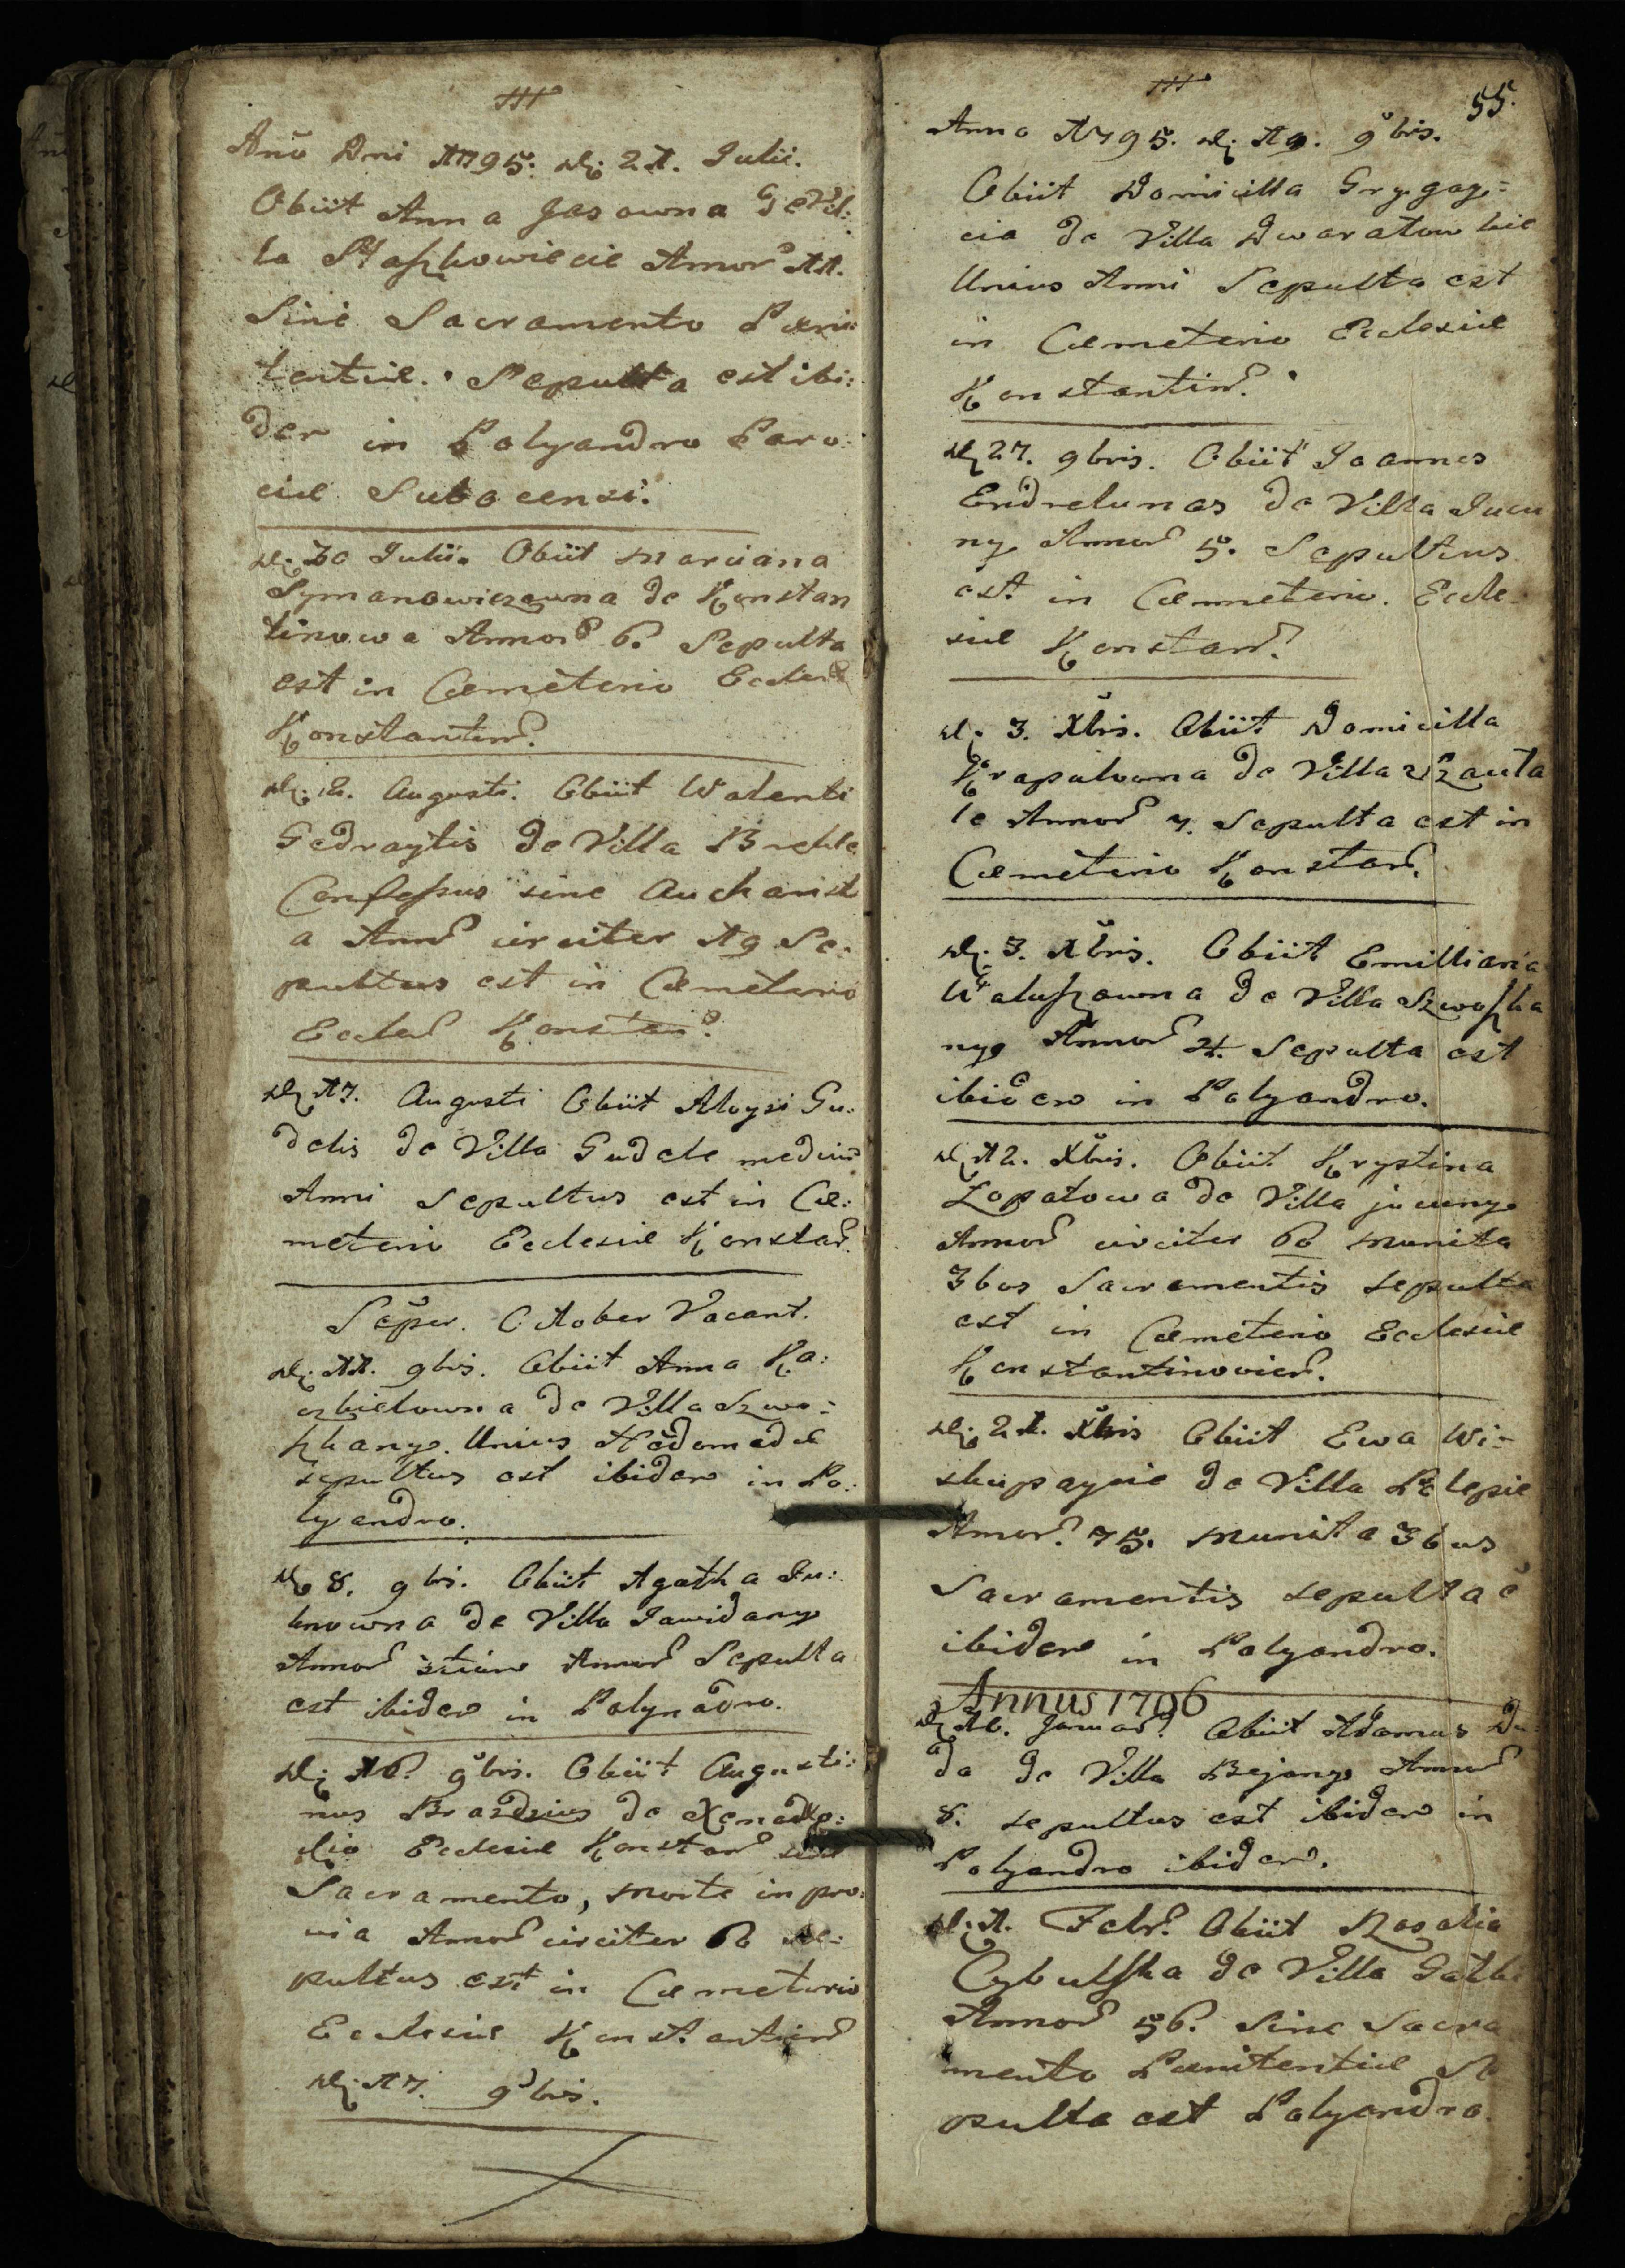 Año Dni 1795. d. 21. Julii.
Obiit Anna Jasowna
Annor̃ 11.
Sine Sacramento Pæni:
tentiæ. Sepulta est ibi:
dem in Polyandro Paro:
ciæ Subocensi.
d. 30 Julii. Obiit Marciana
Symanowiczowna de Konstan
tinowa Annor̃ 6. Sepulta
est in Cæmeterio Eccles̃
Konstantin̄.
d. 2. Augusti. Obiit Walenti
Gedraytis de Villa Brekle
Confessus sine Aucharist
a Ann̄ circiter 19 Se:
pultus est in Cæmeterio
Eccles̃ Konstan̄.
d. 17. Augusti Obiit Aloysi Gu:
delis de Villa Gudele medius
Anni Sepultus est in Cæ:
meterio Ecclesiæ Konstan̄.
Sep̃er. October Vacant.
d. 11. 9bris. Obiit Anna Ka:
de Villa Szwo:
Unius Hedomadæ
sepultus est ibidem in Po:
lyandro.
d. 8. 9bris. Obiit Agatha Ju:
knowna de Villa Jawidany
Annor̃ Annor̃ Sepulta
est ibidem in Polynadro.
d. 16. 9bris. Obiit Augusti:
nus Brazdzius de Xenodo:
dio Ecclesiæ Konstan̄ sine
Sacramento, Morte inpro:
uisa Annor̃ circiter 60 se:
pultus est in Cæmeterio
Ecclesiæ Konstantin̄
d. 17. 9bris.
55.
Anno 1795. d. 19. 9bris.
Obiit Domicilla Grygay:
cia de Villa Dwaratowkie
Unius Anni Sepulta est
in Cæmeterio Ecclesiæ
Konstantin̄.
d. 27. 9bris. Obiit Joannes
Endrelunas de Villa Jucu
ny Annor̃ 5. Sepultus
est in Cæmmeterio. Eccle
siæ Konstan̄.
d. 3. Xbris. Obiit Domicilla
Krapulowna de Villa
le Annor̃ 7. Sepulta est in
Cæmeterio Konstan̄.
d. 3. Xbris. Obiit Emilliana
Waluszowna de Villa Szwoszka
ny Annor̃ 4. Sepulta est
ibidem in Polyandro.
d. 12. Xbris. Obiit Krystina
Łopatowa de Villa jucuny
Annor̃ circiter 60 Munita
3bus Sacramentis sepulta
est in Cæmeterio Ecclesiæ
Konstantinovien̄.
d. 21. Xbris Obiit Ewa Wi:
skupaycie de Villa Pelepie
Annor̃. 75. Munita 3bus
Sacramentis sepulta ẽ
ibidem in Polyandro.
Annus 1796
Januar̃. Obiit Adamus Du:
da de Villa Bejany Annor̃
8. sepultus est ibidem in
Polyandro ibidem.
d. 1. Febr̃. Obiit Rozalia
Cybulska de Villa
Annor̃ 56. Sine Sacra
mento Pænitentiæ Se
pulta est Polyandro.